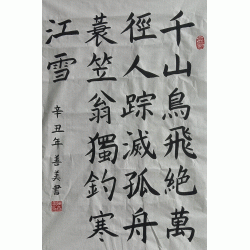 千山鳥飛絶萬
徑人踪滅孤舟
蓑笠翁獨釣寒
江雪
辛丑年善美書